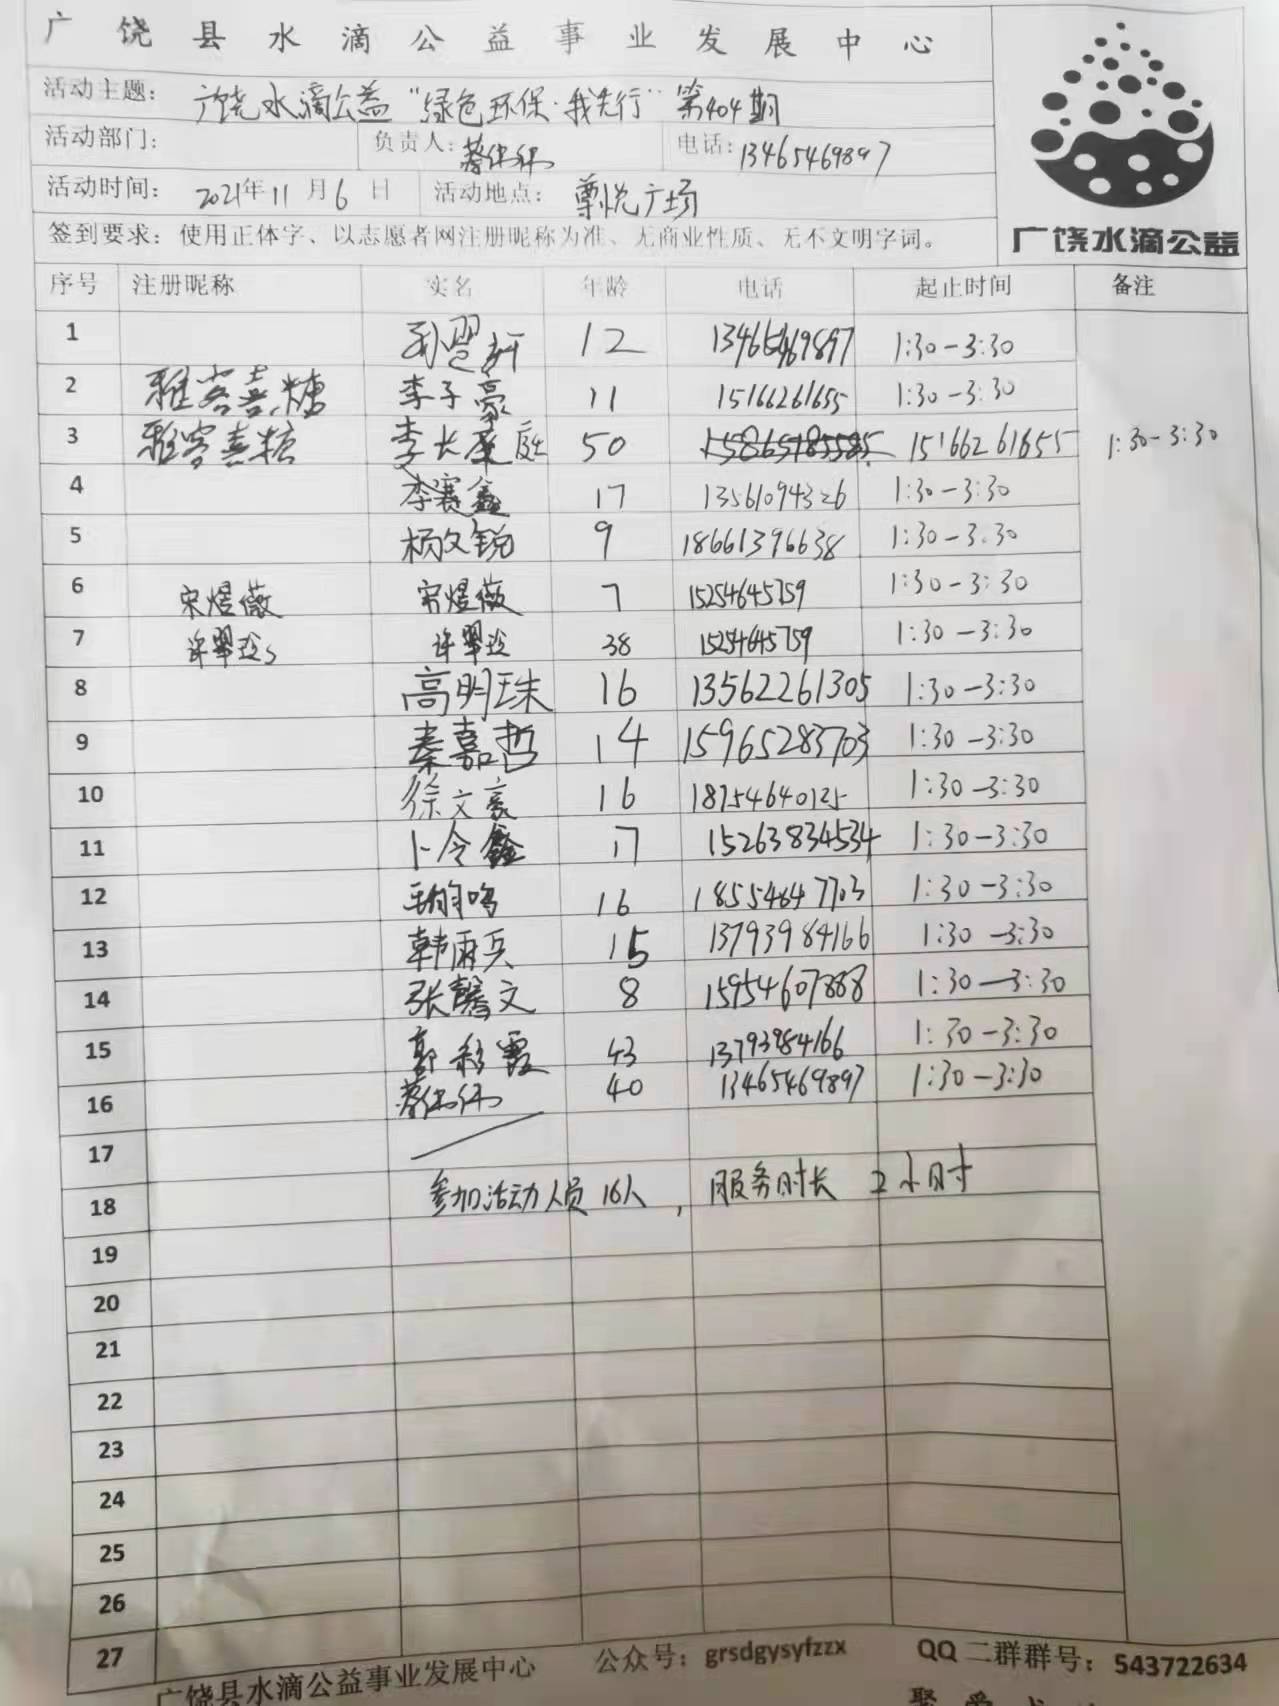 广饶县水滴公益事业发展中心
活动主题： 广饶水滴公益“绿色环保·我先行”第404期
活动部门： 负责人： 电话：13465469897
活动时间： 2021年11月6日 活动地点： 尊悦广场
签到要求：使用正体字、以志愿者网注册昵称为准、无商业性质、无不文明字词。
广饶水滴公益
序号 注册昵称 实名 年龄 电话 起止时间 备注
1 12 13465469897 1:30-3:30
2 雅客喜糖 李子豪 11 15166261655 1:30-3:30
3 雅客喜糖 李大 50 15166261655 1:30-3:30
4 李赛鑫 17 13561094326 1:30-3:30
5 杨文锐 9 18661396638 1:30-3:30
6 宋煜薇 宋煜薇 7 15254645759 1:30-3:30
7 许翠玲 许翠玲 38 15254645759 1:30-3:30
8 高明珠 16 13562261305 1:30-3:30
9 秦嘉哲 14 15965283703 1:30-3:30
10 徐文豪 16 18754640125 1:30-3:30
11 卜令鑫 17 15263834534 1:30-3:30
12 16 18554647703 1:30-3:30
13 韩雨兵 15 13793984166 1:30-3:30
14 张馨文 8 15954607888 1:30-3:30
15 郭彩霞 43 13793984166 1:30-3:30
16 40 13465469897 1:30-3:30
17
18 参加活动人员16人，服务时长 2小时
19
20
21
22
23
24
25
26
27
广饶县水滴公益事业发展中心 公众号：grsdgysyfzzx QQ二群群号：543722634
聚爱